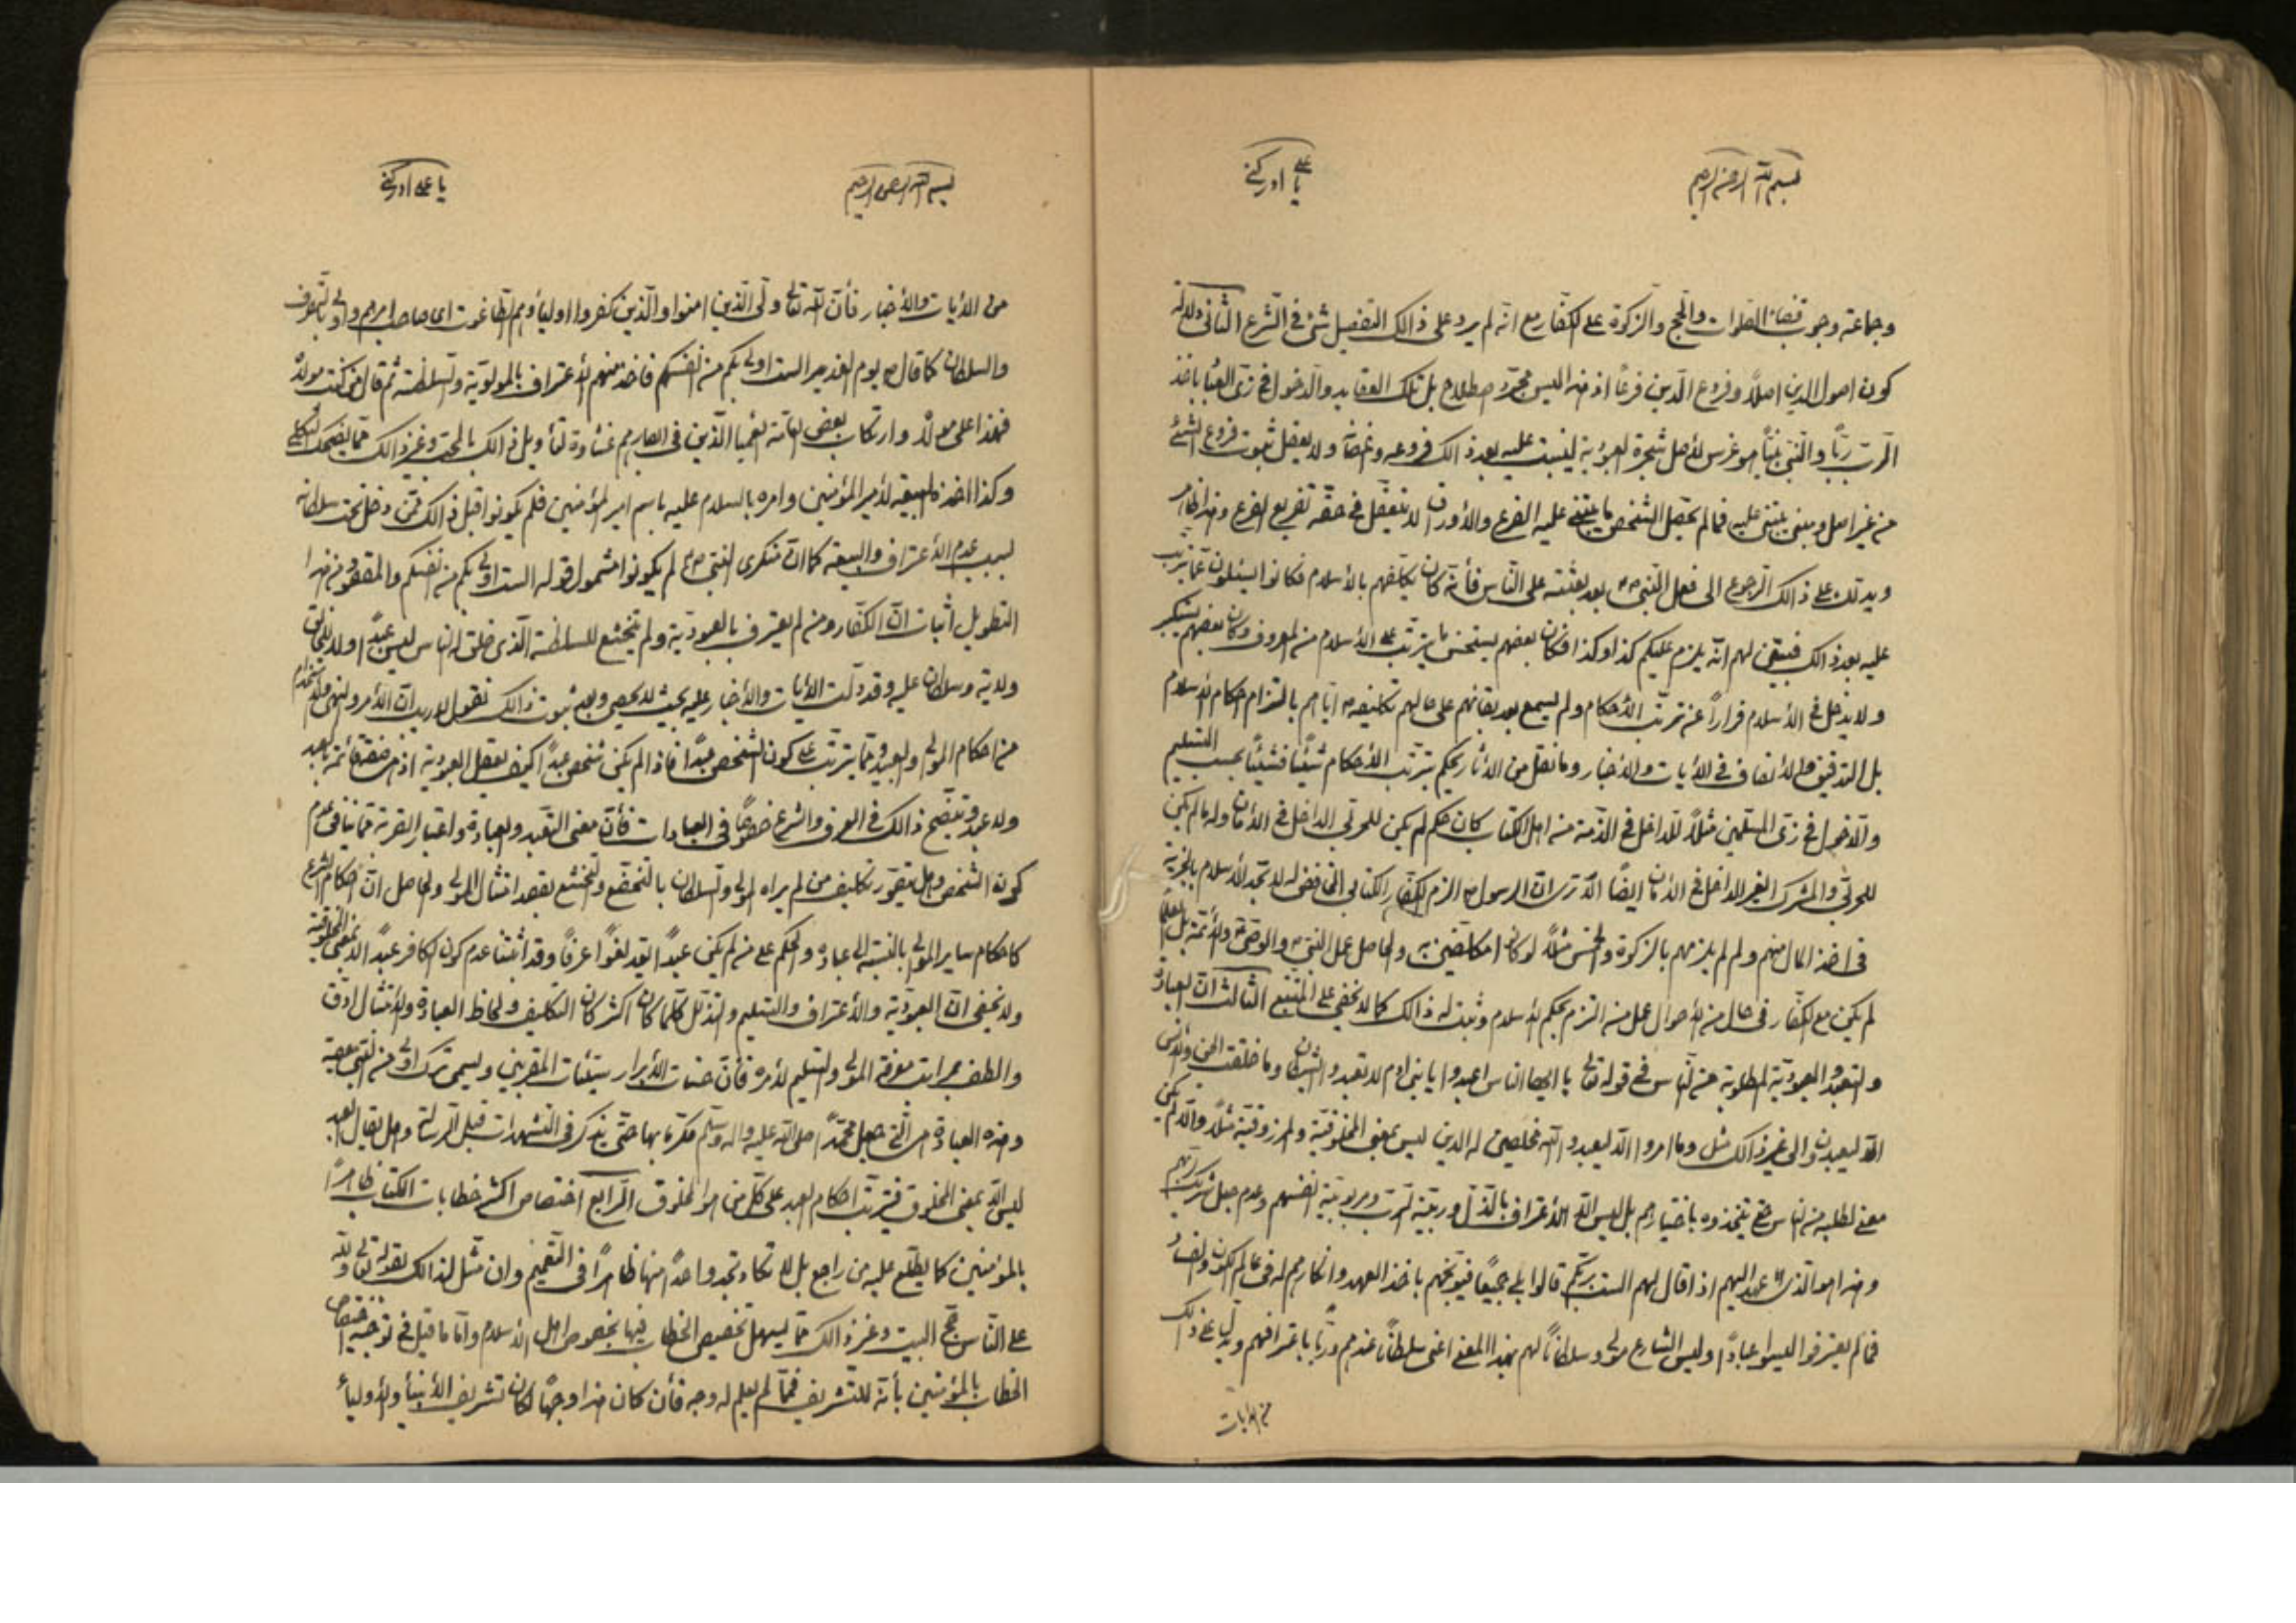 بسم الله الرحمن الرحيم
يا علي ادركني
وجماعة وجوب قضاء الصلوات والحج والزكوة على الكفار مع انه لم يرد على ذالك التفصيل شئ في الشرع الثاني دلالة
كون اصول الدين اصلاً وفروع الدين فرعًا اذ هذا ليس مجرد اصطلاح بل تلك العقايد والدخول في زي العباد باخذ
الرب ربًا والنبي نبيًا هو غرس لأصل شجرة العبودية لينبت عليه بعد ذالك فروعه ولا يعقل ثبوت فروع الشئ
من غير اصل ومبنى يبتنى عليه فما لم يحصل الشخص ما يبتنى عليه الفرع والأوراق لا يتعقل في حقه تفريع الفرع وهذا ظاهر
ويدلك على ذالك الرجوع الى فعل النبي ص بعد بعثته على الناس فأنه كان يكلفهم بالأسلام فكانوا يسئلون عما يترتب
عليه بعد ذالك فيبين لهم انه يلزم عليكم كذا وكذا فكان بعضهم يستحسن ما يترتب على الأسلام من المعروف وكان بعضهم يستكبر
ولا يدخل في الأسلام فرارًا عن ترتب الأحكام ولم يسمع بعد بقائهم على حالهم تكليفه ص اياهم بالتزام احكام الأسلام
بل التدقيق والأنصاف في الأيات والأخبار وما نقل من الأثار يحكم بترتب الأحكام شيئًا فشيئًا بحسب التسليم
والدخول في زي المسلمين مثلاً للداخل في الذمة من اهل الكتاب كان حكم لم يكن للحربي الداخل في الأمان وله ما لم يكن
للحربي والمشرك الغير الداخل في الأمان ايضًا الا ترى ان الرسول ص الزم الكفار الكتابي بالجزية
في اخذ المال منهم ولم لم يلزمهم بالزكوة والخمس مثلاً لو كانوا مكلفين به والحاصل عمل النبي ص والوصي ع والأئمة بل العلماء
لم يكن مع الكفار في حال من الأحوال عمل من التزم بحكم الأسلام وثبت له ذالك كما لا يخفى على المتتبع الثالث ان العبادة
والتعبد والعبودية المطلوبة من الناس في قوله تعالى يا ايها الناس اعبدوا يا بني ادم لا تعبدوا الشيطان وما خلقت الجن والأنس
الا ليعبدون والى غير ذالك مثل وما امروا الا ليعبدوا الله مخلصين له الدين ليس بمعنى المخلوقية والمرزوقية مثلاً والا لم يكن
معنى لطلبه من الناس حتى يتخذوه باختيارهم بل ليس الا الأعتراف بالتذلل وربية الرب ومربوبية انفسهم وعدم جعل شريك لربهم
وهذا هو الذي عهد اليهم اذ قال لهم الست بربكم قالوا بلى جميعًا فيوبخهم باخذ العهد وانكارهم له في عالم الكون والفساد
فما لم يعترفوا ليسوا عبادًا وليس الشارع مولى وسلطانًا لهم بهذا المعنى اعني سلطانًا عندهم وربًا باعترافهم ويدل على ذالك
من الايات
بسم الله الرحمن الرحيم
يا علي ادركني
من الأيات والأخبار فأن الله تعالى ولي الذين امنوا والذين كفروا اوليائهم الطاغوت اي صاحب امرهم
والسلطان كما قال ص يوم الغدير الست اولى بكم من انفسكم فاخذ منهم الأعتراف بالمولوية والسلطنة ثم قال من كنت مولاه
فهذا علي مولاه وارتكاب بعض العامة العميا الذين في ابصارهم غشاوة لتأويل ذالك بالمحب وغير ذالك مما يضحك الثكلى
وكذا اخذه البيعة لأمير المؤمنين وامره بالسلام عليه باسم امير المؤمنين فلم يكونوا قبل ذالك ممن دخل تحت سلطانه
بسبب عدم الأعتراف والبيعة كما ان منكري النبي ص لم يكونوا مشمول قوله الست اولى بكم من انفسكم والمقصود من هذا
التطويل اثبات ان الكفار ومن لم يعترف بالعبودية ولم يتخشع للسلطنة الذي خلق الناس ليس عبدًا ولا للخالق
ولاية وسلطان عليه وقد دلت الأيات والأخبار عليه بحيث لا يحصى وبعد ثبوت ذالك نقول لا ريب ان الأمر والنهي والأستخدام
من احكام المولى والعبد ومما يترتب على كون الشخص عبدًا فاذا لم يكن شخص عبدًا كيف يعقل العبودية اذ هي صفة قائمة بالعبد
ولا عبد ويتضح ذالك في العرف والشرع خصوصًا في العبادات فأن معنى التعبد والعبادة واعتبار القربة مما ينافي عدم
كون الشخص وهل يتصور تكليف من لم يراه المولى والسلطان بالتخضع والتخشع بقصد امتثال المولى والحاصل ان احكام الشرع
كاحكام ساير الموالي بالنسبة الى عباده والحكم على من لم يكن عبدًا يعد لغوًا عرفًا وقد اثبتنا عدم كون الكافر عبدًا الا بمعنى المخلوقية
ولا يخفى ان العبودية والأعتراف والتسليم والتذلل كلما كان اكثر كان التكليف ولحاظ العبادة والأمتثال ادق
والطف مراتب معرفة المولى والتسليم لأمره فأن حسنات الأبرار سيئات المقربين ويسمى ترك اولى من النبي معصية
وهذه العبادة هي التي جعل محمدًا صلى الله عليه واله وسلم مكرمًا بها حتى يذكر في التشهدات قبل الرسالة وهل يقال العبد
ليس الا بمعنى المخلوق فيترتب احكام العبد على كل من هو المخلوق الرابع اختصاص اكثر خطابات الكتاب ظاهرًا
بالمؤمنين كما يطلع عليه من راجع بل لا تكاد تجد واحدًا منها ظاهرًا في التعميم وان مثل لذالك بقوله تعالى ولله
على الناس حج البيت وغير ذالك مما يسهل تخصيص الخطاب فيها بخصوص اهل الأسلام واما ما قيل في توجيه اختصاص
الخطاب بالمؤمنين بأنه للتشريف فمما لم يعلم له وجه فأن كان هذا وجهًا لكان تشريف الأنبياء والأولياء